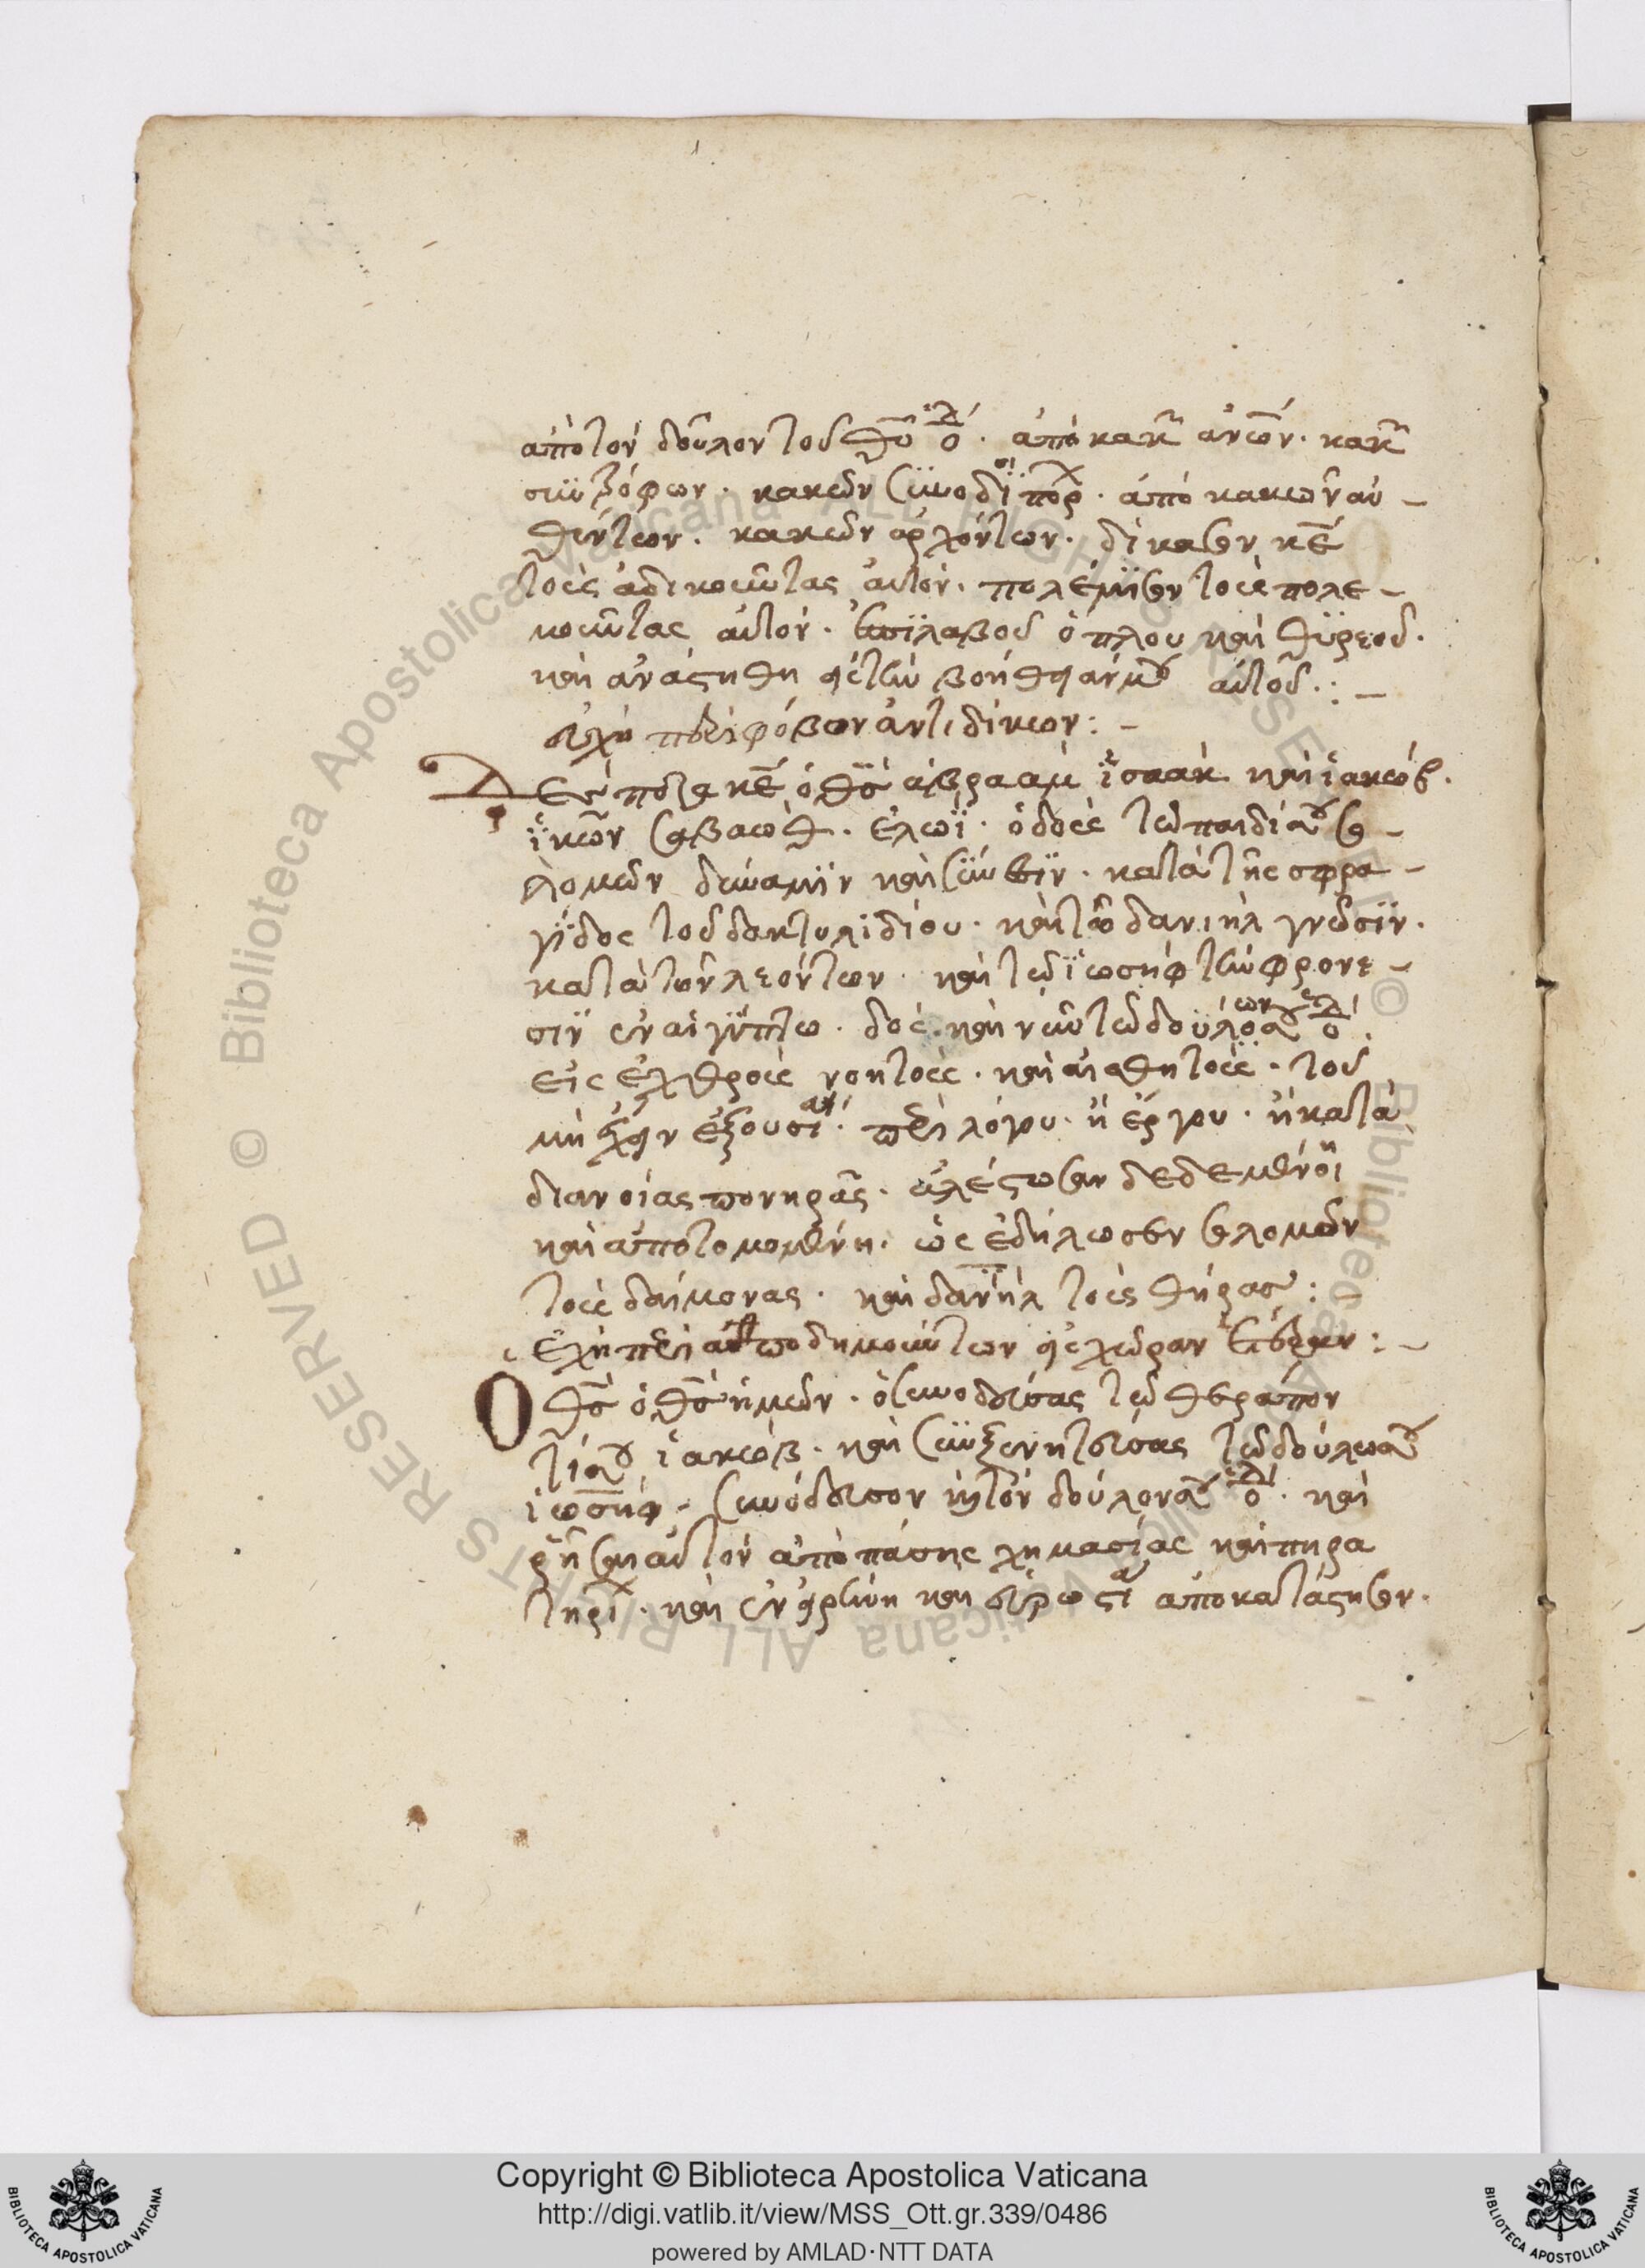 ἀπὸ τὸν δοῦλον τοῦ θῦ ὁ δ. ἀπὸ κακ ἀνῶν. κακ
συϊζόφων. κακῶν συνοδϊπορ. ἀπὸ κακῶν αὐ-
θεντῶν. κακῶν ἀρχόντων. δίκασον κε
τοὺς ἀδικοῦντας αὐτόν. πολέμησον τοὺς πολε-
μοῦντας αὐτόν. ἐπϊλαβοῦ ὅπλου καὶ θϋρεοῦ.
καὶ ἀνάστηθη εἰς τὴν βοήθειάν μου αὐτοῦ:-
εὐχὴ περὶ φόβων ἀντιδίκων:-
Δέσποτα κε ὁ θς ἀβραὰμ ϊσαὰκ καὶ ϊακώβ.
ἐλωΐ. ὁ δοὺς τῷ παιδί σου σο-
λομῶν δύναμϊν καὶ σύνεσϊν. κατὰ τῆς σφρα-
γίδος τοῦ δακτυλιδίου. καὶ τῷ δανιὴλ γνῶσϊν.
κατὰ τῶν λεόντων. καὶ τῷ ϊωσὴφ τὴν φρόνε-
σϊν ἐν αἰγύπτω. δὸς καὶ νῦν τῷ δούλω σου ὁ δ.
εἰς ἐχθροὺς νοητοὺς. καὶ αἰσθητοὺς. τοῦ
μὴ ἔχειν ἐξουσίαν. περὶ λόγου. ἢ ἔργου. ἢ κατὰ
διανοίας πονηρᾶς. ἀλέστωσαν δεδεμένοι
καὶ ἀποτομομένη. ὡς ἐδήλωσεν σολομῶν
τοὺς δαίμονας. καὶ δανϊὴλ τοὺς θήρας:
εὐχὴ περὶ ἀποδημούντων εἰς χώραν ἑτέραν:-
Ὁ θς ὁ θς ἡμῶν. ὁ συνοδεύσας τῷ θεράπον
τί σου ϊακώβ. καὶ συνξενητεύσας τῷ δούλω σου
ἰωσήφ. συνόδευσον καὶ τὸν δοῦλόν σου ὁ δ. καὶ
ρῦσαι αὐτὸν ἀπὸ πάσης χημασίας καὶ πηρα
τηρι. καὶ ἐν εἰρήνη καὶ εὐρωστία ἀποκατάστησον.